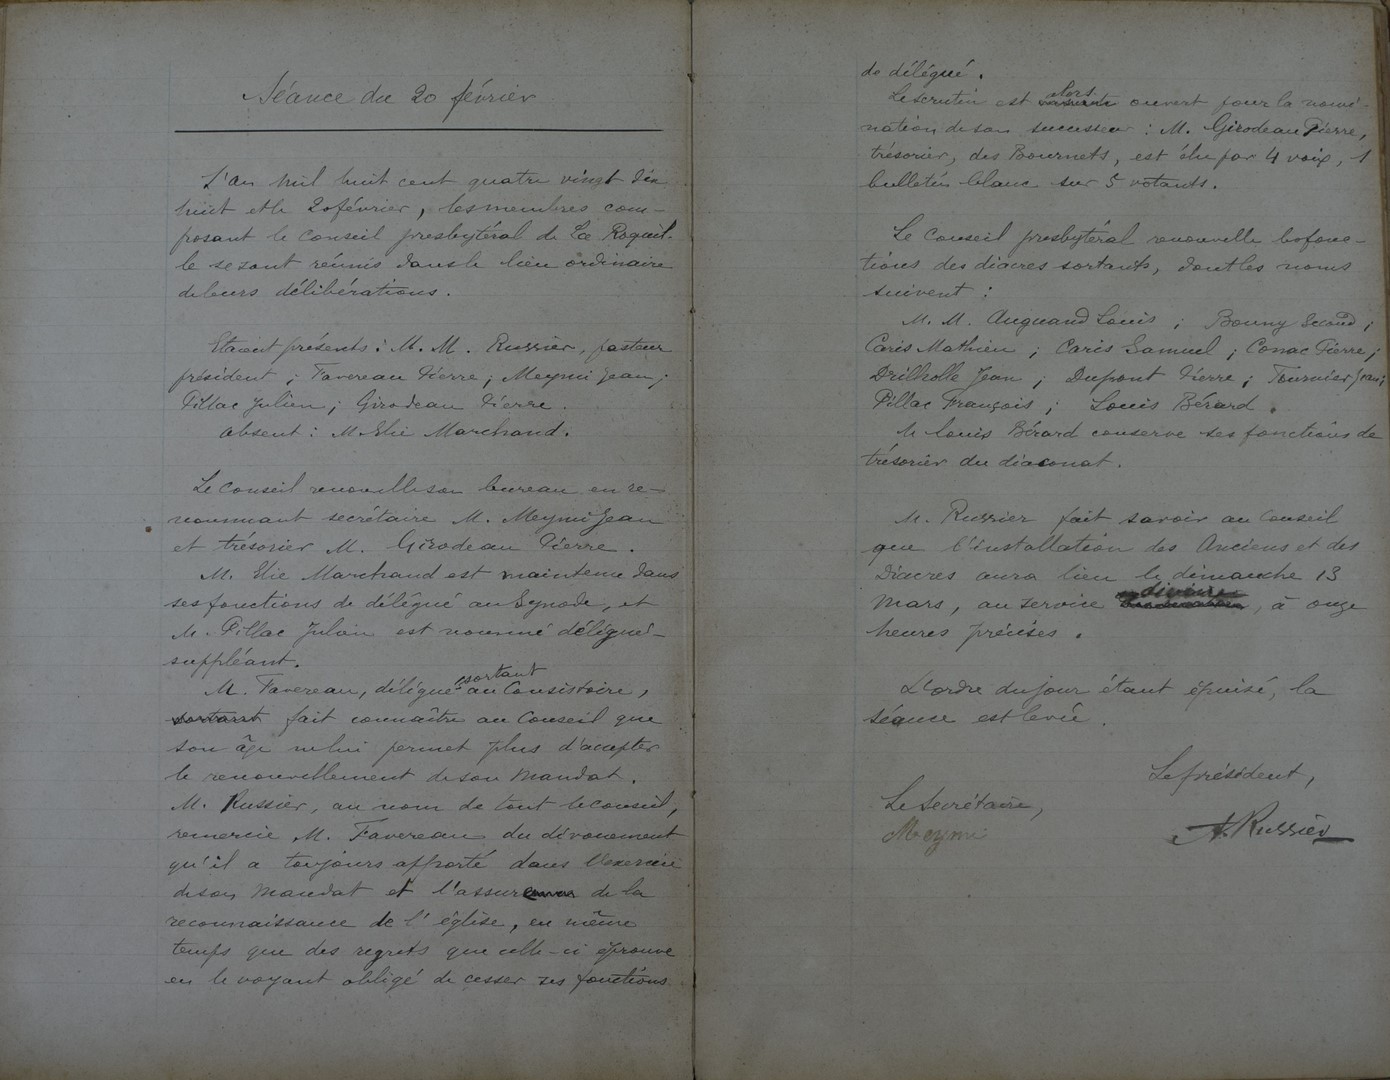 Séance du 20 février
L'an mil huit cent quatre vingt dix
huit et le 20 février, les membres com-
posant le Conseil presbytéral de La Roquil-
le se sont réunis dans le lieu ordinaire
de leurs délibérations.
Etaient présents : M. M. Russier, pasteur
président ; Favereau Pierre ; Meymi Jean ;
Pillac Julien ; Girodeau Pierre.
Absent : M. Elie Marchand.
Le Conseil renouvelle son bureau en re-
nommant secrétaire M. Meymi Jean
et trésorier M. Girodeau Pierre.
M. Elie Marchand est maintenu dans
ses fonctions de délégué au Synode, et
M. Pillac Julien est nommé délégué-
suppléant.
M. Favereau, délégué sortant au Consistoire,
sortant fait connaître au Conseil que
son âge ne lui permet plus d'accepter
le renouvellement de son mandat.
M. Russier, au nom de tout le Conseil,
remercie M. Favereau du dévouement
qu'il a toujours apporté dans l'exercice
de son mandat et l'assure de la
reconnaissance de l'église, en même
temps que des regrets que celle-ci éprouve
en le voyant obligé de cesser ses fonctions
de délégué.
Le scrutin est alors ouvert pour la nomi-
nation de son successeur : M. Girodeau Pierre,
trésorier, des Bournets, est élu par 4 voix, 1
bulletin blanc sur 5 votants.
Le Conseil presbytéral renouvelle les fonc-
tions des diacres sortants, dont les noms
suivent :
M. M. Auguand Louis ; Bonny Second ;
Caris Mathieu ; Caris Samuel ; Conac Pierre ;
Drilholle Jean ; Dupont Pierre ; Tournier Jean ;
Pillac François ; Louis Bérard.
M. Louis Bérard conserve ses fonctions de
trésorier du diaconat.
M. Russier fait savoir au Conseil
que l'installation des Anciens et des
Diacres aura lieu le dimanche 13
Mars, au service, à onze
heures précises.
L'ordre du jour étant épuisé, la
séance est levée.
Le président,
Le Secrétaire,
Meymi
A. Russier